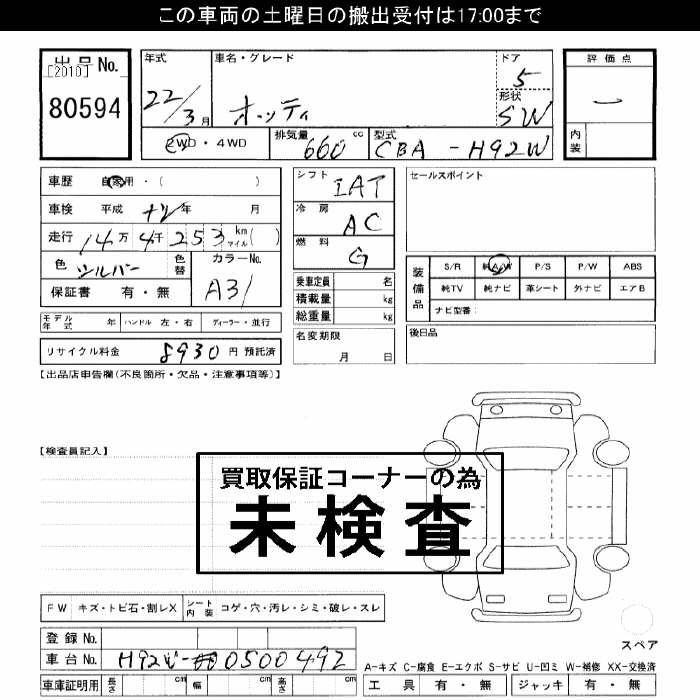 この車両の土曜日の搬出受付は17:00まで
出品No.
[2010]
80594
年式 22/3月
車名・グレード オッティ
ドア 5
形状 SW
2WD・4WD
排気量 660 cc
型式 CBA-H92W
評価点 ー
内装
車歴 自家用・( )
車検 平成 年 月
走行 14万4千253 km マイル( )
色 シルバー 色替
カラーNo. A31
保証書 有・無
シフト IAT
冷房 AC
燃料 G
乗車定員 名
積載量 kg
総重量 kg
名変期限 月 日
セールスポイント
装備品
S/R 純A/W P/S P/W ABS
純TV 純ナビ 革シート 外ナビ エアB
ナビ型番:
後日品
モデル年式 年 ハンドル 左・右 ディーラー・並行
リサイクル料金 8930 円 預託済
【出品店申告欄(不良箇所・欠品・注意事項等)】
【検査員記入】
買取保証コーナーの為
未検査
FW キズ・トビ石・割レX シート内装 コゲ・穴・汚レ・シミ・破レ・スレ
スペア
登録No.
車台No. H92W-0500492
車庫証明用 長さ cm 幅 cm 高さ cm
A-キズ C-腐食 E-エクボ S-サビ U-凹ミ W-補修 XX-交換済
工具 有・無 ジャッキ 有・無